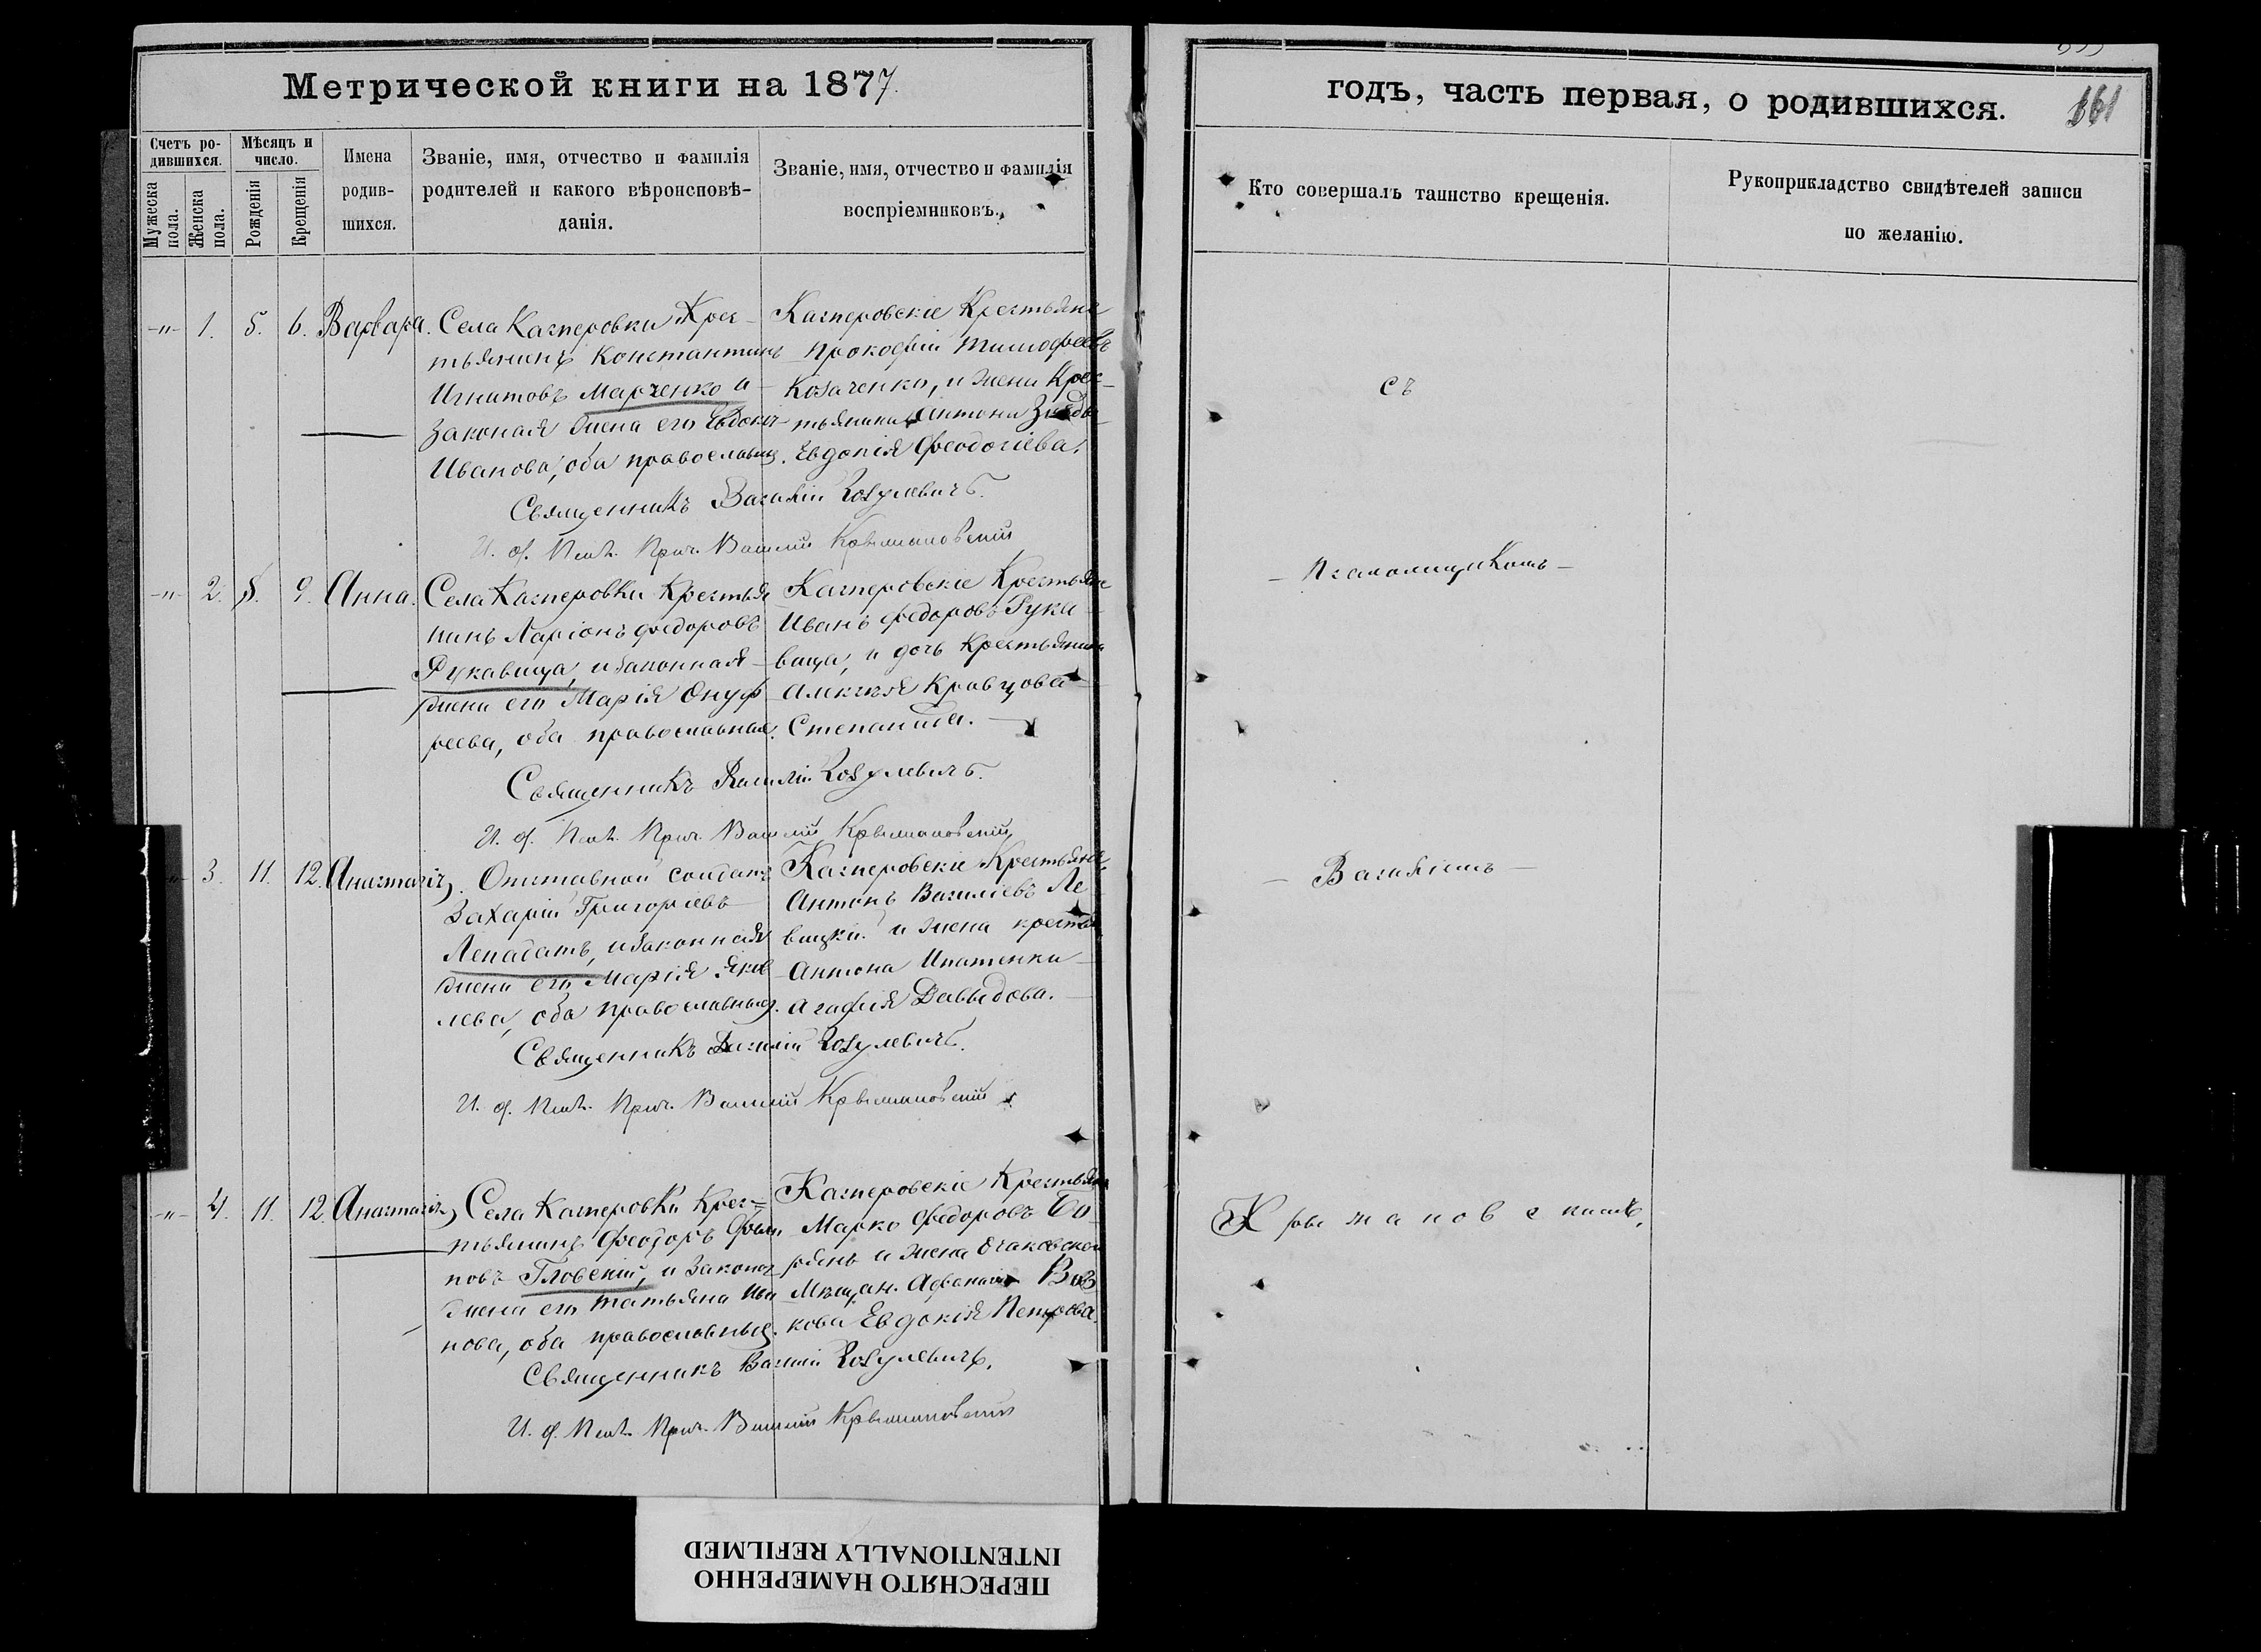 Метрической книги на 1877.
Счетъ ро-
дившихся.
Мужеска
пола.
Женска
пола.
Мѣсяцъ и
число.
Рожденія
Крещенія
Имена
родив-
шихся.
Званіе, имя, отчество и фамилія
родителей и какого вѣроисповѣ-
данія.
Званіе, имя, отчество и фамилія
воспріемниковъ.
-„- 1. 5. 6. Варвара.
Села Касперовки Крес-
тьянинъ Константинъ
Игнатовъ Марченко и
законая жена его Евдокі
Иванова, оба православны.
Касперовскіе Крестьяне
Прокофій Тимофеевъ
Козаченко, и жена Крес-
тьянина Антона
Евдокія Феодосіева.
Священникъ Василій Козулевичъ.
И. д. Псал. Прич. Василій Крыжановскій
-„- 2. 8. 9. Анна.
Села Касперовки Крестья
нинъ Ларіонъ Федоровъ
Рукавица, и законная
жена его Марія Онуф
реева, оба православные.
Касперовскіе Крестьяне
Иванъ Федоровъ Рука
вица, и дочь Крестьянина
Алексея Кравцова
Степанида.
Священникъ Василій Козулевичъ.
И. д. Псал. Прич. Василій Крыжановскій
-„- 3. 11. 12. Анастасія.
Отставной солдатъ
Захарій Григоріевъ
Лепадатъ, и законная
жена его Марія Яков
лева, оба православныя.
Касперовскіе Крестьяне,
Антонъ Василіевъ Ле
вицкій и жена крестья
Антона Ипатенки
Агафія Давыдова.
Священникъ Василій Козулевичъ.
И. д. Псал. Прич. Василій Крыжановскій
-„- 4. 11. 12. Анастасія,
Села Касперовки Крес=
тьянинъ Феодоръ Фили
повъ Гловскій, и закон
жена его Татьяна Ива
нова, оба православныя.
Касперовскіе Крестьяне
Марко Федоровъ Бо
рдянъ и жена Очаковскаго
Мѣщан. Афанасія Вов
кова Евдокія Петрова.
Священникъ Василій Козулевичъ.
И. д. Псал. Прич. Василій Крыжановскій
годъ, часть первая, о родившихся.
161
Кто совершалъ таинство крещенія.
Рукоприкладство свидѣтелей записи
по желанію.
съ
- Псаломщикомъ -
- Василіемъ -
Крыжановскимъ,
ПЕРЕСНЯТО НАМЕРЕННО
INTENTIONALLY REFILMED